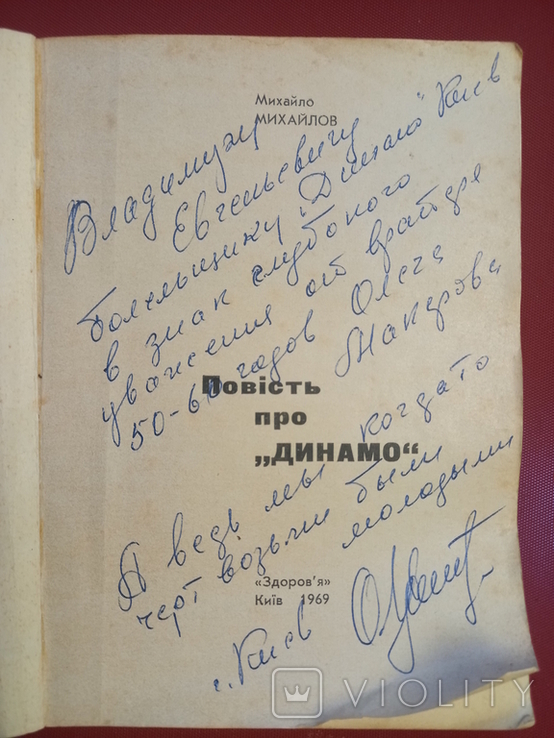 Михайло
МИХАЙЛОВ
Владимиру
Евгеньевичу
болельщику "Динамо" Киев
в знак глубокого
уважения от вратаря
50-60 годов Олега
Макарова
Повість
про
„ДИНАМО“
А ведь мы когдато
черт возьми были
молодыми
„Здоров'я“
Київ 1969
г. Киев
VIOLITY